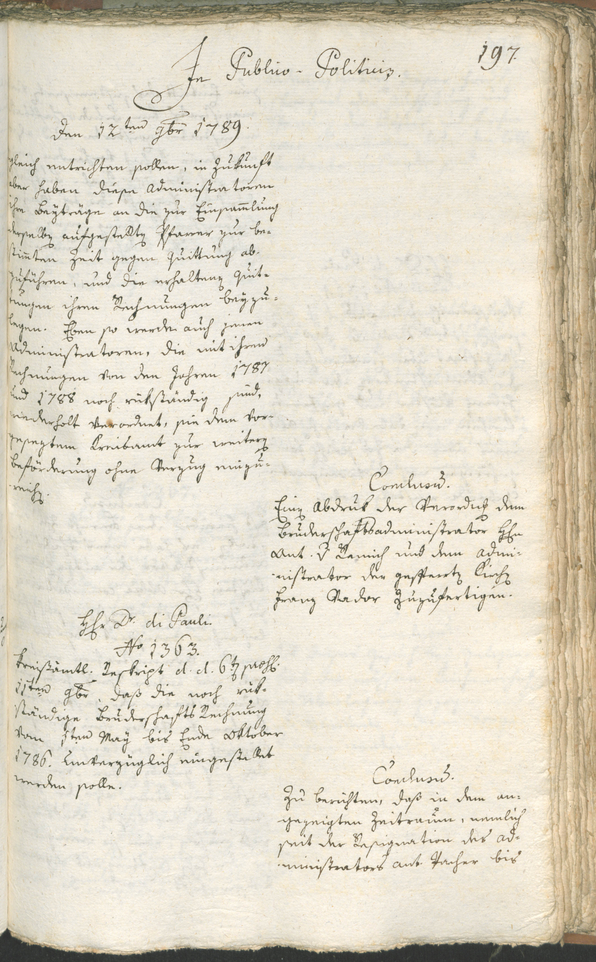 197.
In Publico-Politicis.
Den 12ten 9br 1789.
gleich entrichten sollen, in Zukunft
aber haben diese Administratoren
ihre Beyträge an die zur Einsammlung
derselben aufgestellte Pfarrer zur be-
stimten Zeit gegen Quittung ab-
zuführen, und die erhaltene Quit-
tungen ihren Rechnungen beyzu-
legen. Eben so werde auch jenen
Administratoren, die mit ihren
Rechnungen von den Jahren 1787
und 1788 noch rükständig sind,
wiederholt verordnet, sie dem vor-
gesezten Kreisamt zur weitern
Beförderung ohne Verzug einzu-
reichen.
Conclusum.
Einen Abdruk der Verordnung dem
Bruderschaftsadministrator Hhn
Ant. v Remich und dem Admi-
nistrator der gesperrten Kirchen
Franz Nador zuzufertigen.
Hhr Dr. di Pauli.
No 1363.
Kreisämtl. Reskript d. d. 6ten prses.
11ten 9br, daß die noch rük-
ständige Bruderschafts Rechnung
vom 1ten May bis Ende Oktober
1786. unverzüglich eingestaltet
werden solle.
Conclusum.
Zu berichten, daß in dem an-
gezeigten Zeitraum, nemlich
seit der Resignation des Ad-
ministrators Ant Pacher bis